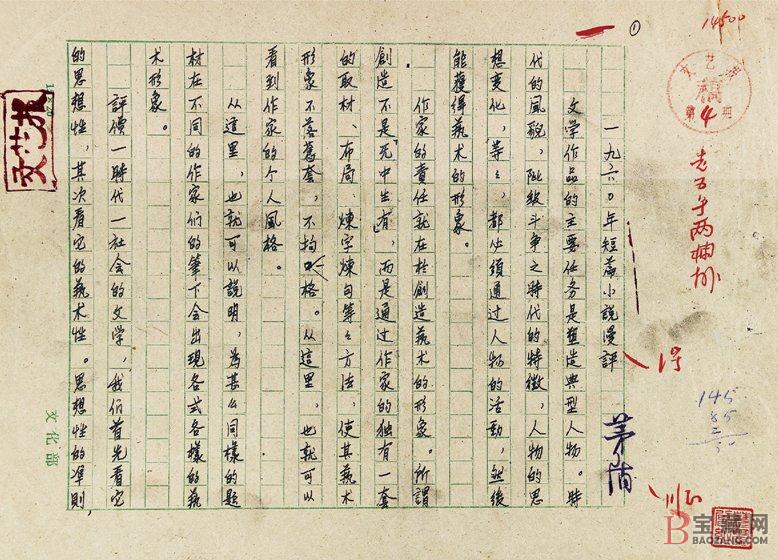 ①
14500
文艺报
稿
第4期
老五号两栏排
一九六〇年短篇小說漫評
茅盾
文学作品的主要任务是塑造典型人物。时
代的風貌，阶級斗争之时代的特徵，人物的思
想变化，等々，都必須通过人物的活動，然後
能獲得藝术的形象。
作家的責任就在於創造藝术的形象。所謂
創造不是「无中生有」，而是通过作家的独有一套
的取材、布局、煉字煉句等々方法，使其藝术
形象不落舊套，不拘一格。从這里，也就可以
看到作家的个人風格。
从這里，也就可以說明，為甚么同樣的題
材在不同的作家們的筆下会出現各式各樣的藝
术形象。
評價一時代一社会的文学，我們首先看它
的思想性，其次看它的藝术性。思想性的準則，
文艺报
文化部
145
85
宝藏网
BAOZANG.COM